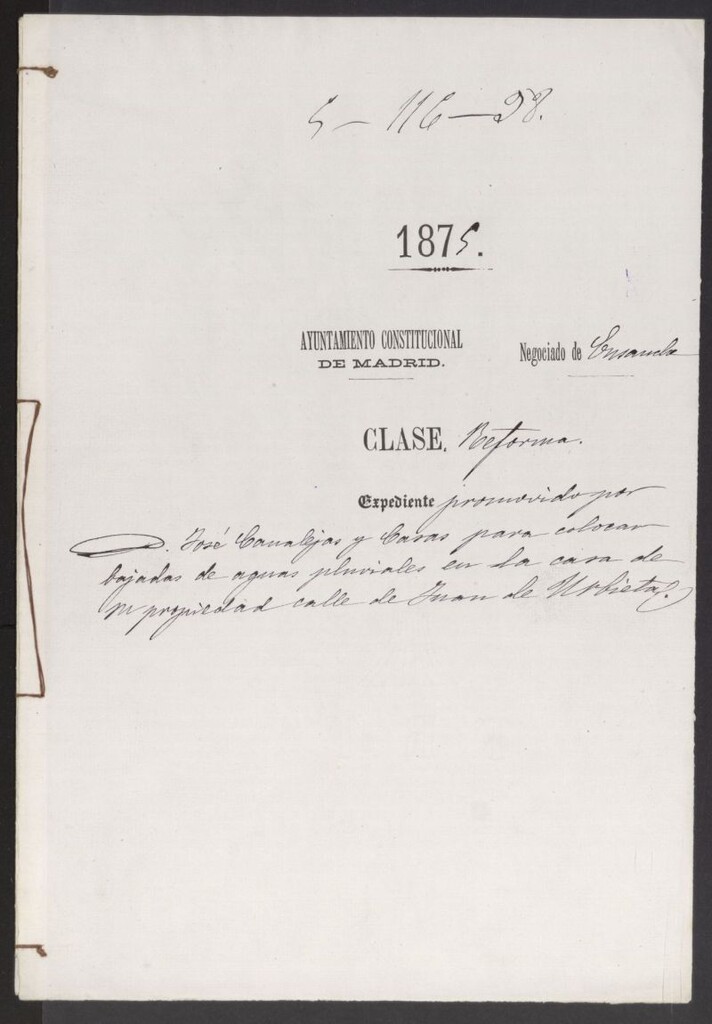 5 - 116 - 28.
1875.
AYUNTAMIENTO CONSTITUCIONAL
DE MADRID.
Negociado de Ensanche
CLASE. Reforma.
Expediente promovido por
D. José Canalejas y Casas para colocar
bajadas de aguas pluviales en la casa de
su propiedad calle de Juan de Urbieta.